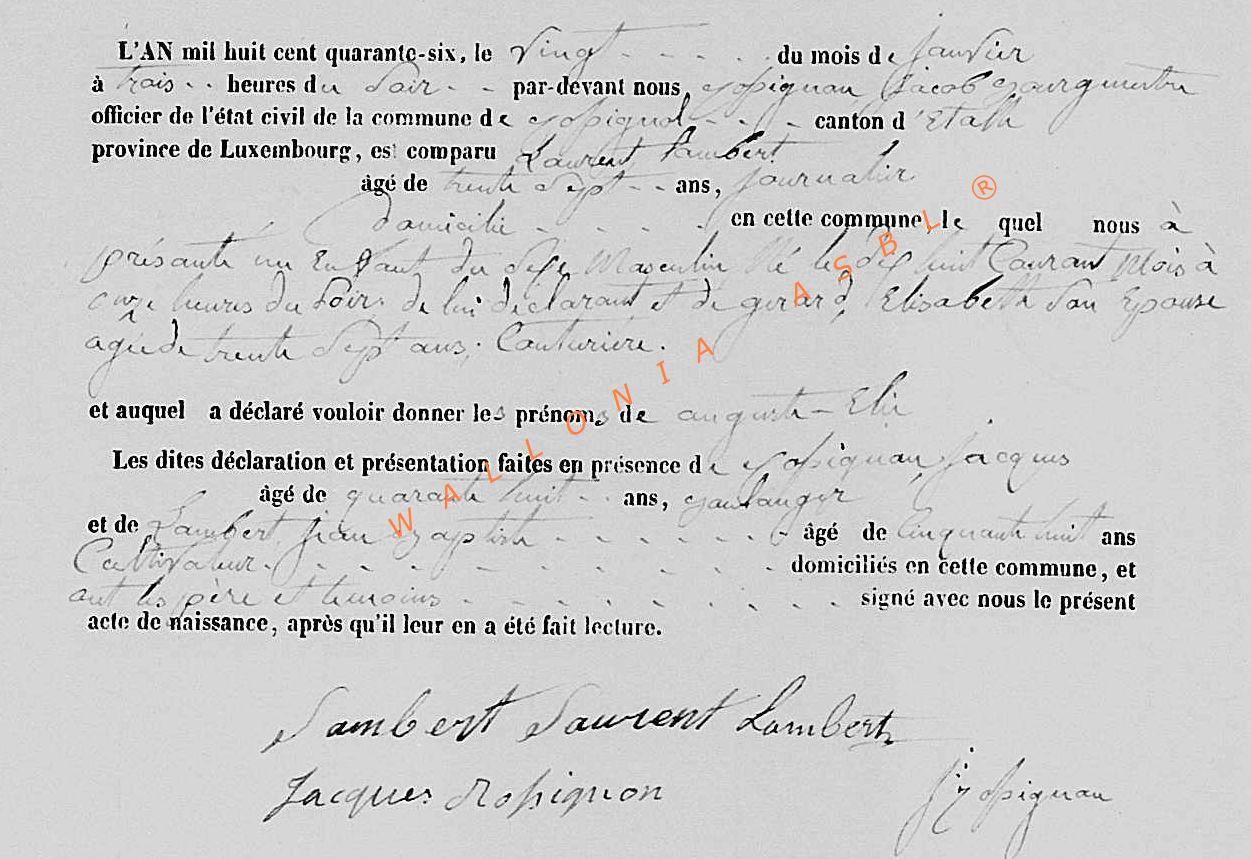 L'AN mil huit cent quarante-six, le Vingt - - - - du mois de janvier
à trois - - heures du Soir - - par-devant nous, Rossignon Jacob Bourgmestre
officier de l'état civil de la commune de Rossignol - - - canton d'Etalle
province de Luxembourg, est comparu Laurent Lambert
âgé de trente Sept - - ans, journalier
domicilié - - - - en cette commune, le quel nous à
présanté un Enfant du Sexe Masculin Né le dix huit Courant Mois à
onze heures du Soir, de lui déclarant et de gerard, Elisabeth Son Epouse
agée de trente Sept ans, Couturière.
et auquel a déclaré vouloir donner les prénoms de auguste - Elie
Les dites déclaration et présentation faites en présence de Rossignon Jacques
âgé de quarante huit - - ans, Boulanger
et de Lambert, jean Baptiste - - - - - - âgé de Cinquante huit ans
Cultivateur - - - - - - - - - domiciliés en cette commune, et
ont les père et temoins - - - - - - - - signé avec nous le présent
acte de naissance, après qu'il leur en a été fait lecture.
Lambert Laurent Lambert
Jacques Rossignon
Rossignon
WALLONIA ASBL ®